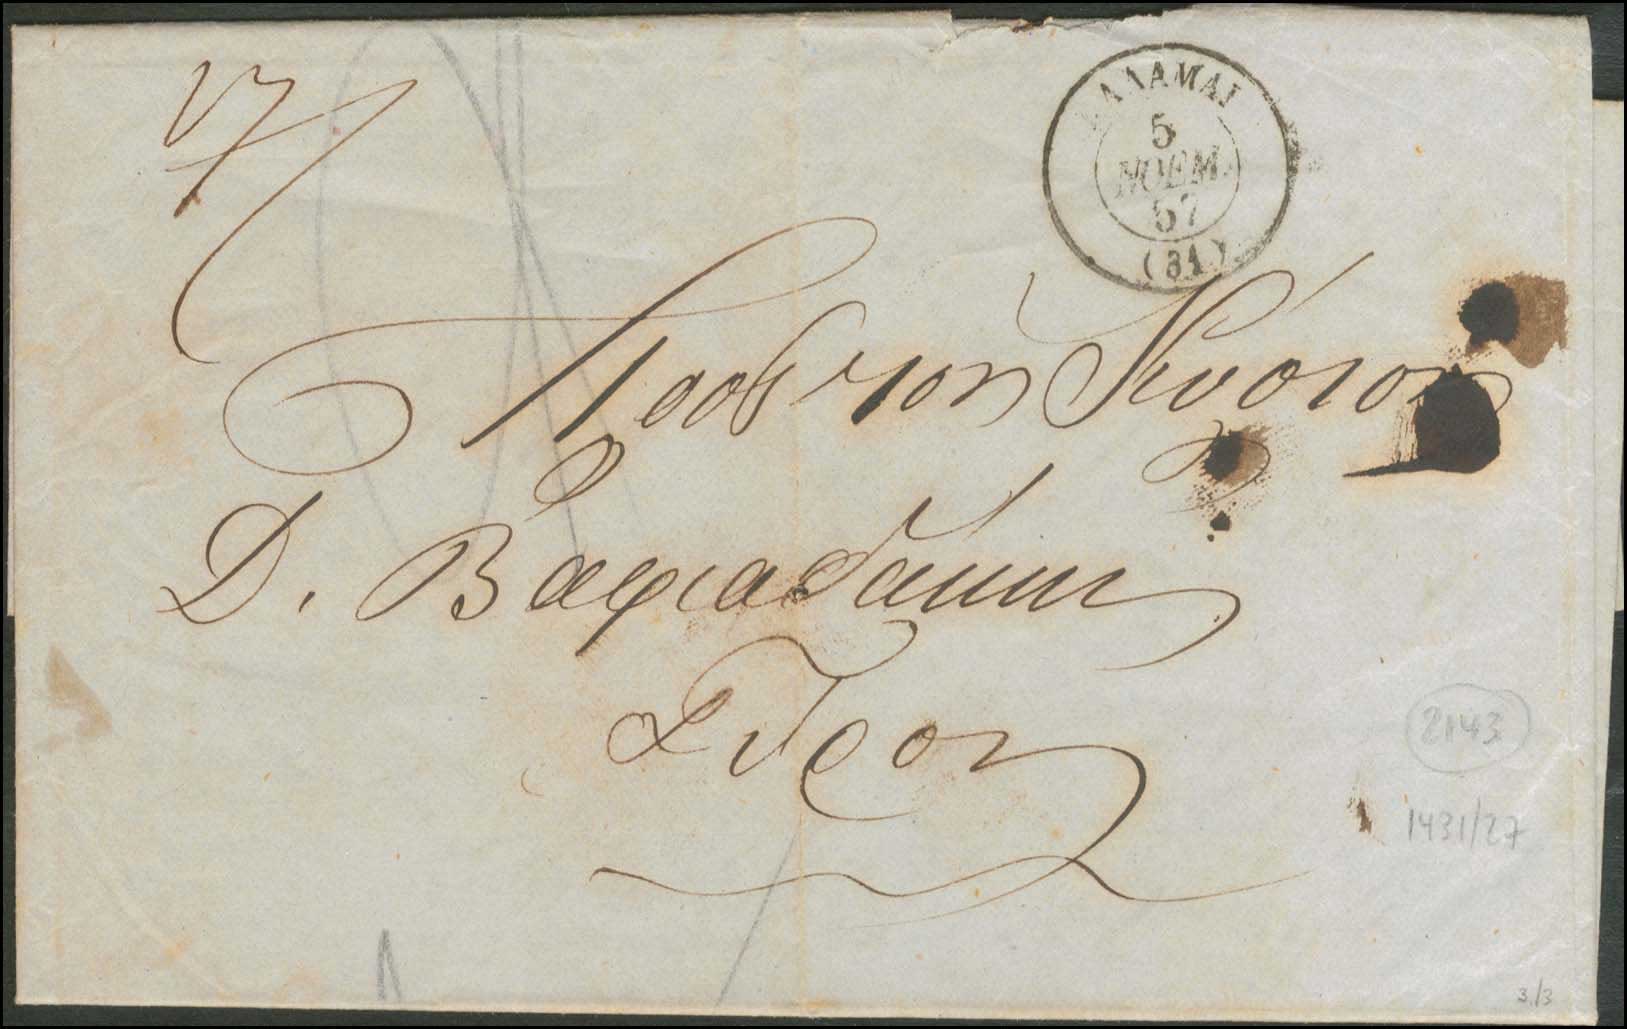 ΚΑΛΑΜΑΙ
5
ΝΟΕΜ.
57
(31)
Προς τον Κύριον
Δ. Βαφιαδάκην
Σύρον
2143
1431/27
3/3